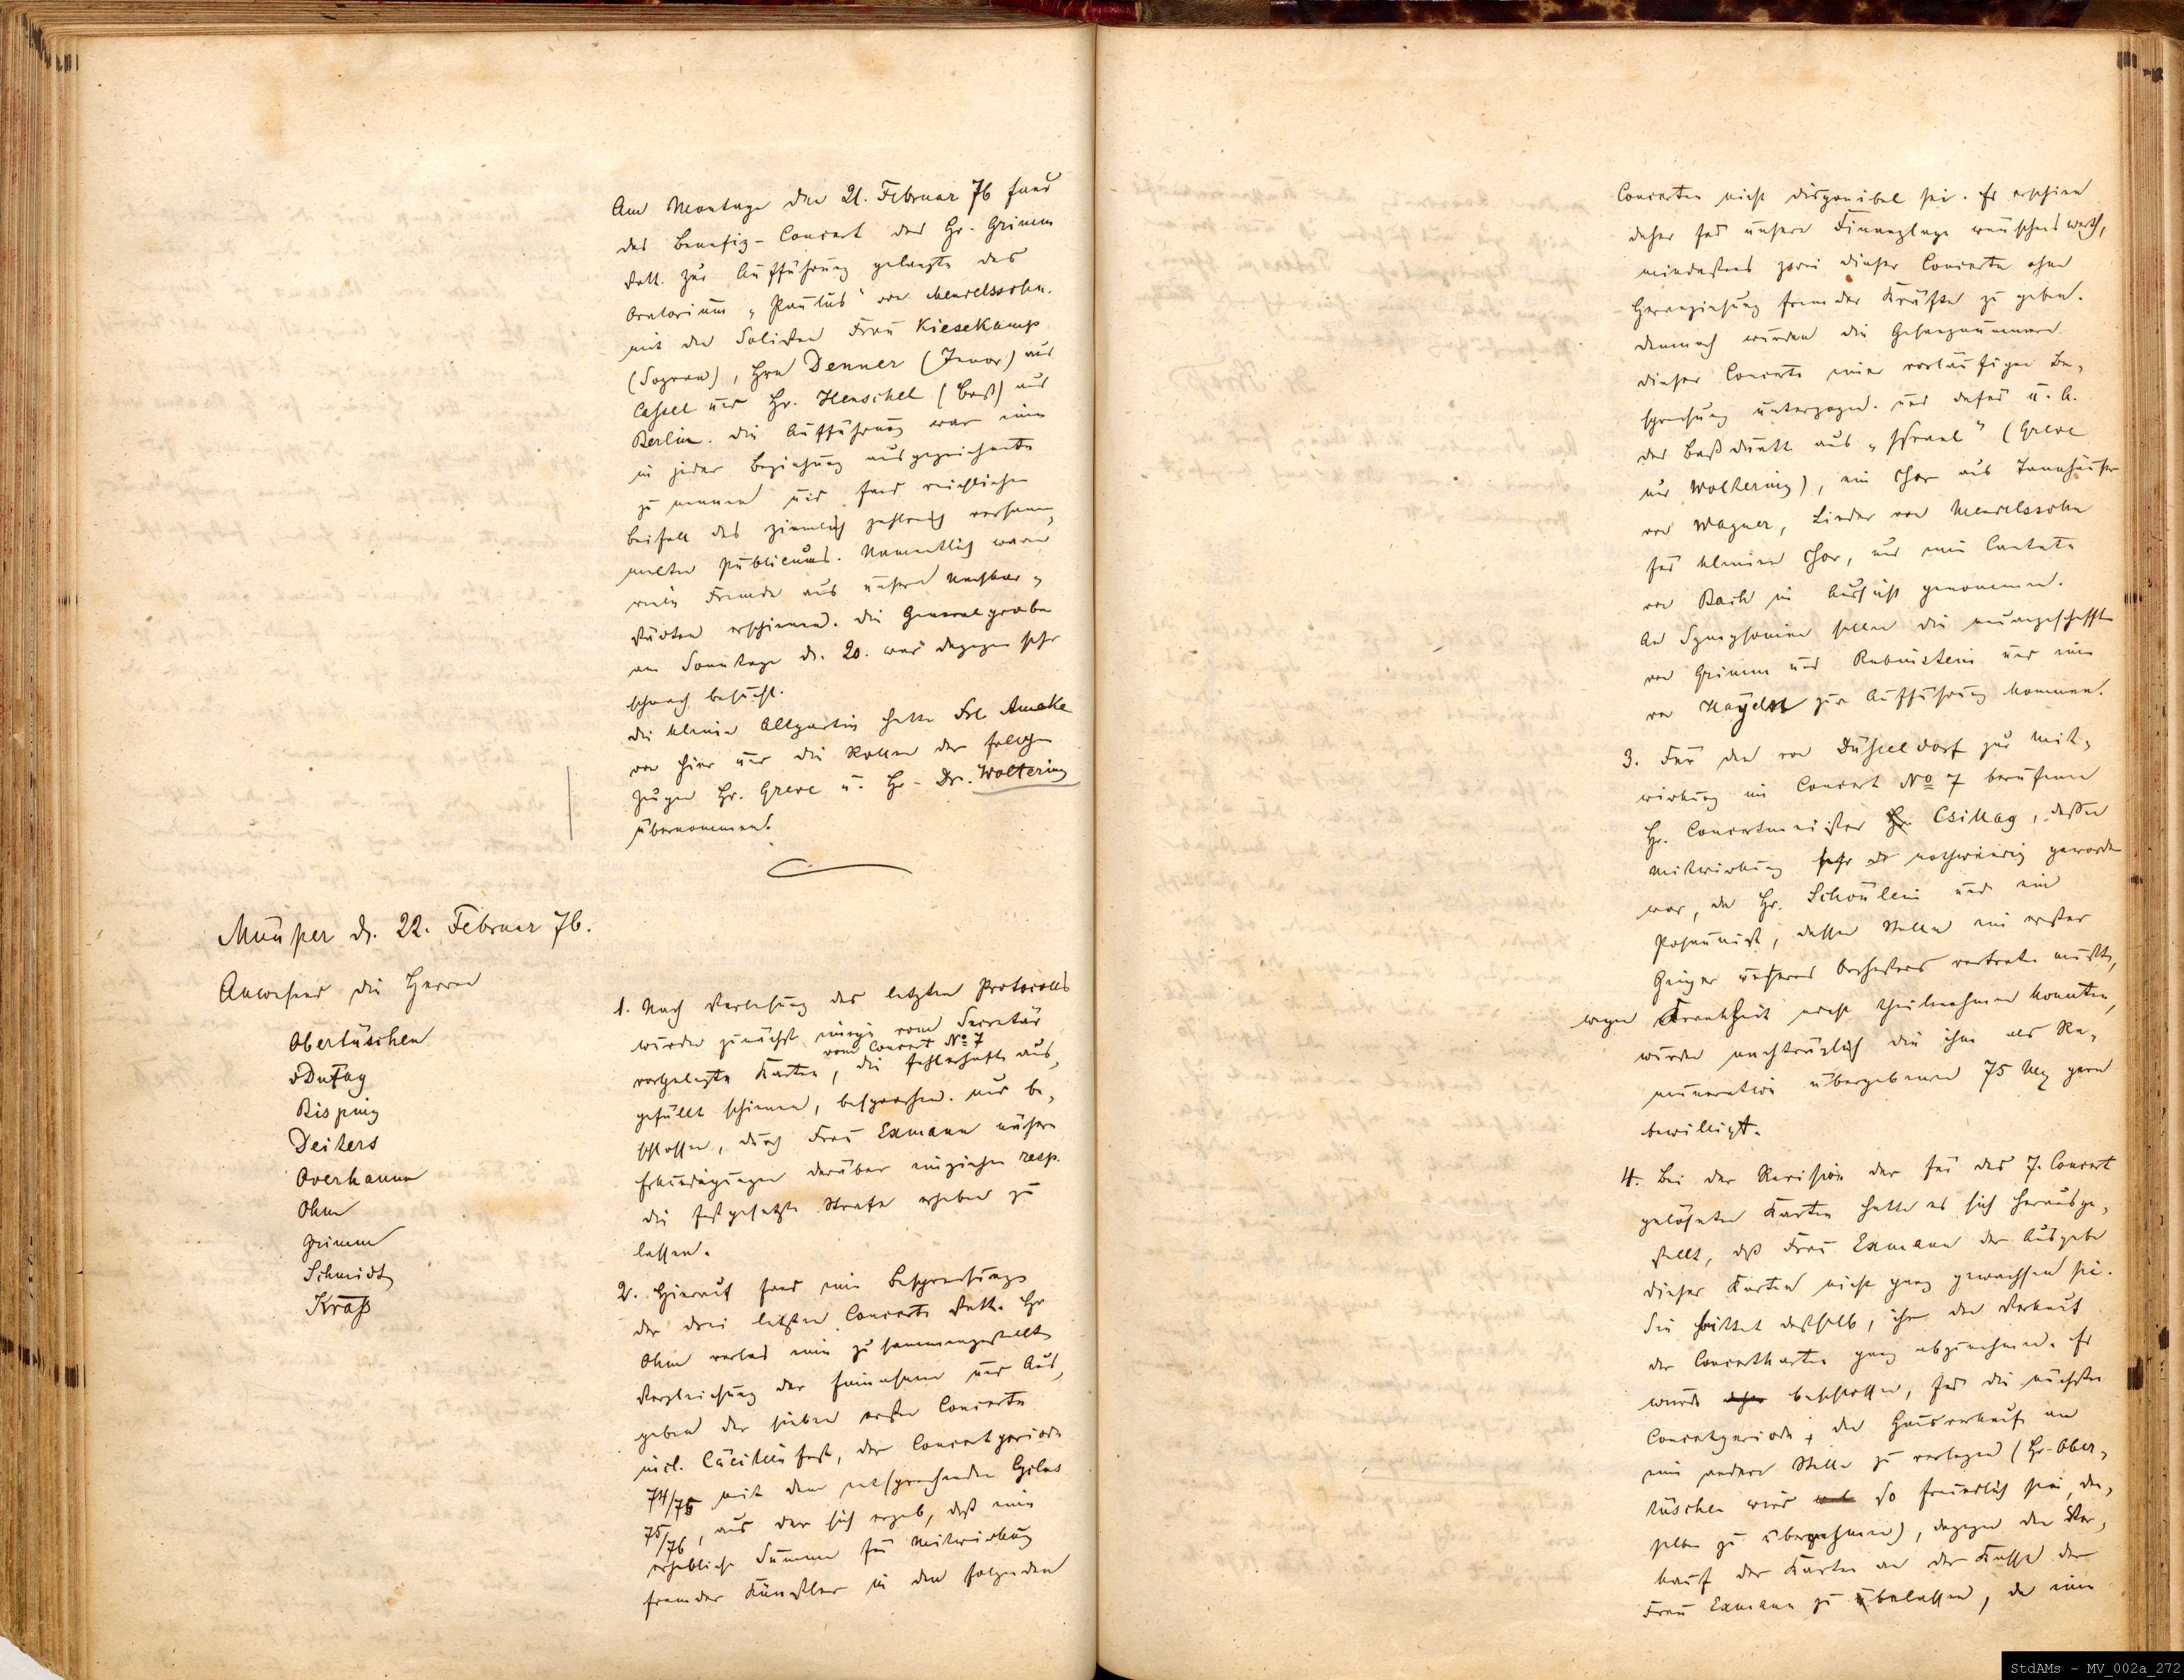 Am Montage den 21. Februar 76 fand
das Benefiz-Concert des Hr. Grimm
statt. Zur Aufführung gelangte das
Oratorium „Paulus" von Mendelssohn.
mit den Solisten Frau Kiesekamp
(Sopran), Hrn Denner (Tenor) aus
Cassel und Hr. Henschel (Baß) aus
Berlin. Die Aufführung war eine
in jeder Beziehung ausgezeichnete
zu nennen und fand reichlichen
Beifall des ziemlich zahlreich versam-
melten Publicums. Namentlich waren
viele Fremde aus unsern Nachbar-
städten erschienen. Die Generalprobe
am Sonntage d. 20. war dagegen sehr
schwach besucht.
Die kleine Altpartie hatte Frl. Ameke
von hier und die Rollen der falschen
Zeugen Hr. Greve u. Hr. Dr. Woltering
übernommen.
Münster d. 22. Februar 76.
Anwesend die Herren
Obertüschen
vDuFay
Bisping
Deiters
Overhamm
Ohm
Grimm
Schmidt
Kraß
1. Nach Verlesung des letzten Protocolls
wurden zunächst einige vom Secretär
vom Concert No 7
vorgelegte Karten, die fehlerhaft aus-
gefüllt schienen, besprochen. und be-
schlossen, durch Frau Exmann nähere
Erkundigungen darüber einziehen resp.
die festgesetzte Strafe erheben zu
lassen.
2. Hierauf fand eine Besprechung
der drei letzten Concerte statt. Hr
Ohm verlas eine zusammengestellte
Vergleichung der Einnahmen und Aus-
gaben der sieben ersten Concerte
incl. Cäcilienfest, der Concertperiode
74/75 mit dem entsprechenden
75/76, aus der sich ergab, daß eine
erhebliche Summe für Mitwirkung
fremder Künstler in den folgenden
Concerten nicht disponibel sei. Es erschien
daher für unsere Finanzlage wünschenswerth,
mindestens zwei dieser Concerte ohne
Heranziehung fremder Kräfte zu geben.
Demnach wurden die Gesangnummern
dieser Concerte einer vorläufigen Be-
sprechung unterzogen. und dafür u. A.
das Baßduett aus „Israel" (Greve
und Woltering), ein Chor aus Tannhäuser
von Wagner, Lieder von Mendelssohn
für kleinen Chor, und eine Cantate
von Bach in Aussicht genommen.
An Symphonien sollen die neuangeschafften
von Grimm und Rubinstein und eine
von Haydn zur Aufführung kommen.
3. Für den von Düsseldorf zur Mit-
wirkung im Concert No 7 berufenen
Hr. Concertmeister Csillag, dessen
Mitwirkung sehr nothwendig geworden
war, da Hr. Schäulein und ein
Posaunist, dessen Stelle ein erster
Geiger unseres Orchesters vertreten mußte,
wegen Krankheit nicht theilnehmen konnten,
wurden nachträglich die ihm als Re-
muneration übergebenen 75 M gern
bewilligt.
4. Bei der Revision der für das 7. Concert
gelösten Karten hatte es sich herausge-
stellt, daß Frau Exmann der Ausgabe
dieser Karten nicht ganz gewachsen sei.
Sie bittet deßhalb, ihr den Verkauf
der Concertkarten ganz abzunehmen. Es
wurde beschlossen, für die nächste
Concertperiode, den Hausverkauf an
eine andere Stelle zu verlegen (Hr. Ober-
tüschen wird so freundlich sein, den-
selben zu übernehmen), dagegen den Ver-
kauf der Karten an der Kasse der
Frau Exmann zu überlassen, da eine
StdAMs - MV_002a_272